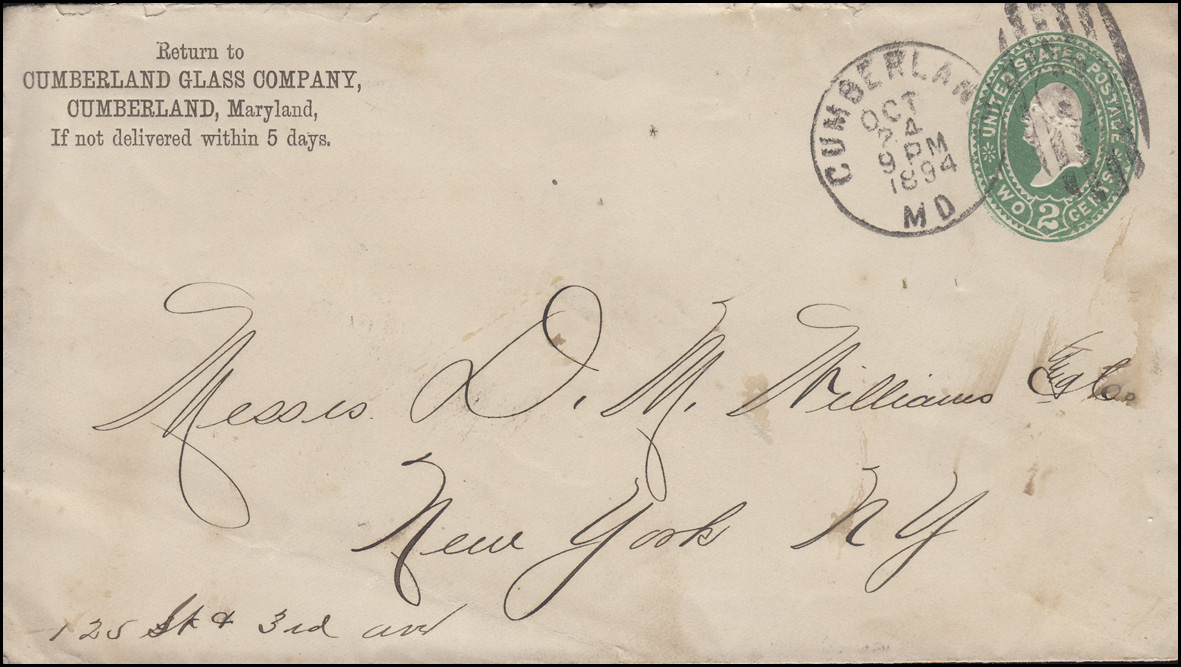 Return to
CUMBERLAND GLASS COMPANY,
CUMBERLAND, Maryland,
If not delivered within 5 days.
CUMBERLAN
OCT
24
9 PM
1894
MD
UNITED STATES POSTAGE
TWO 2 CENTS
Messrs. D. M. Williams & Co.
New York N Y
125 St & 3rd ave